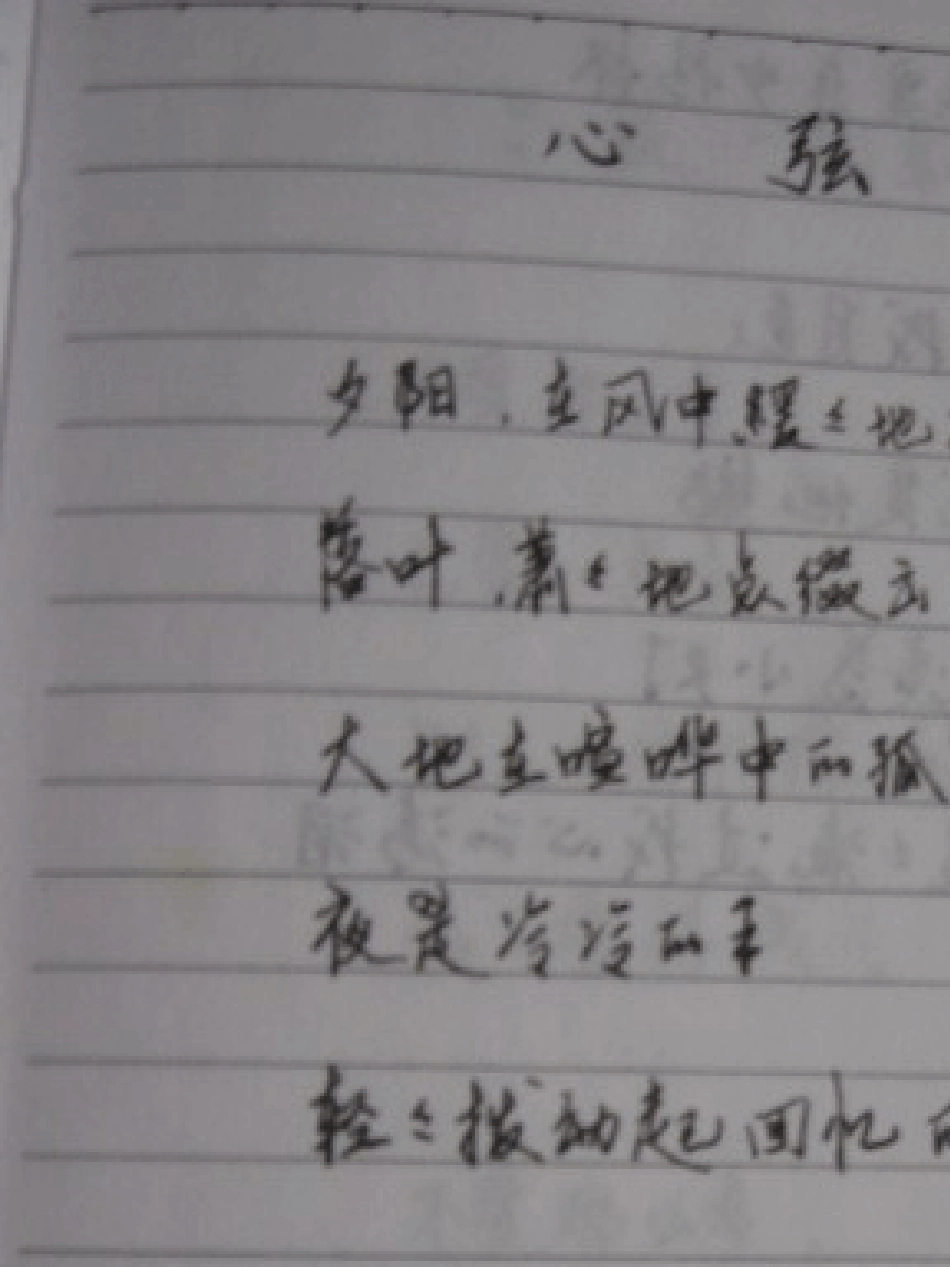 心 弦
夕阳，在风中，缓々地
落叶，萧々地点缀云
大地在喧哗中的孤
夜是冷冷的手
轻々拨动起回忆